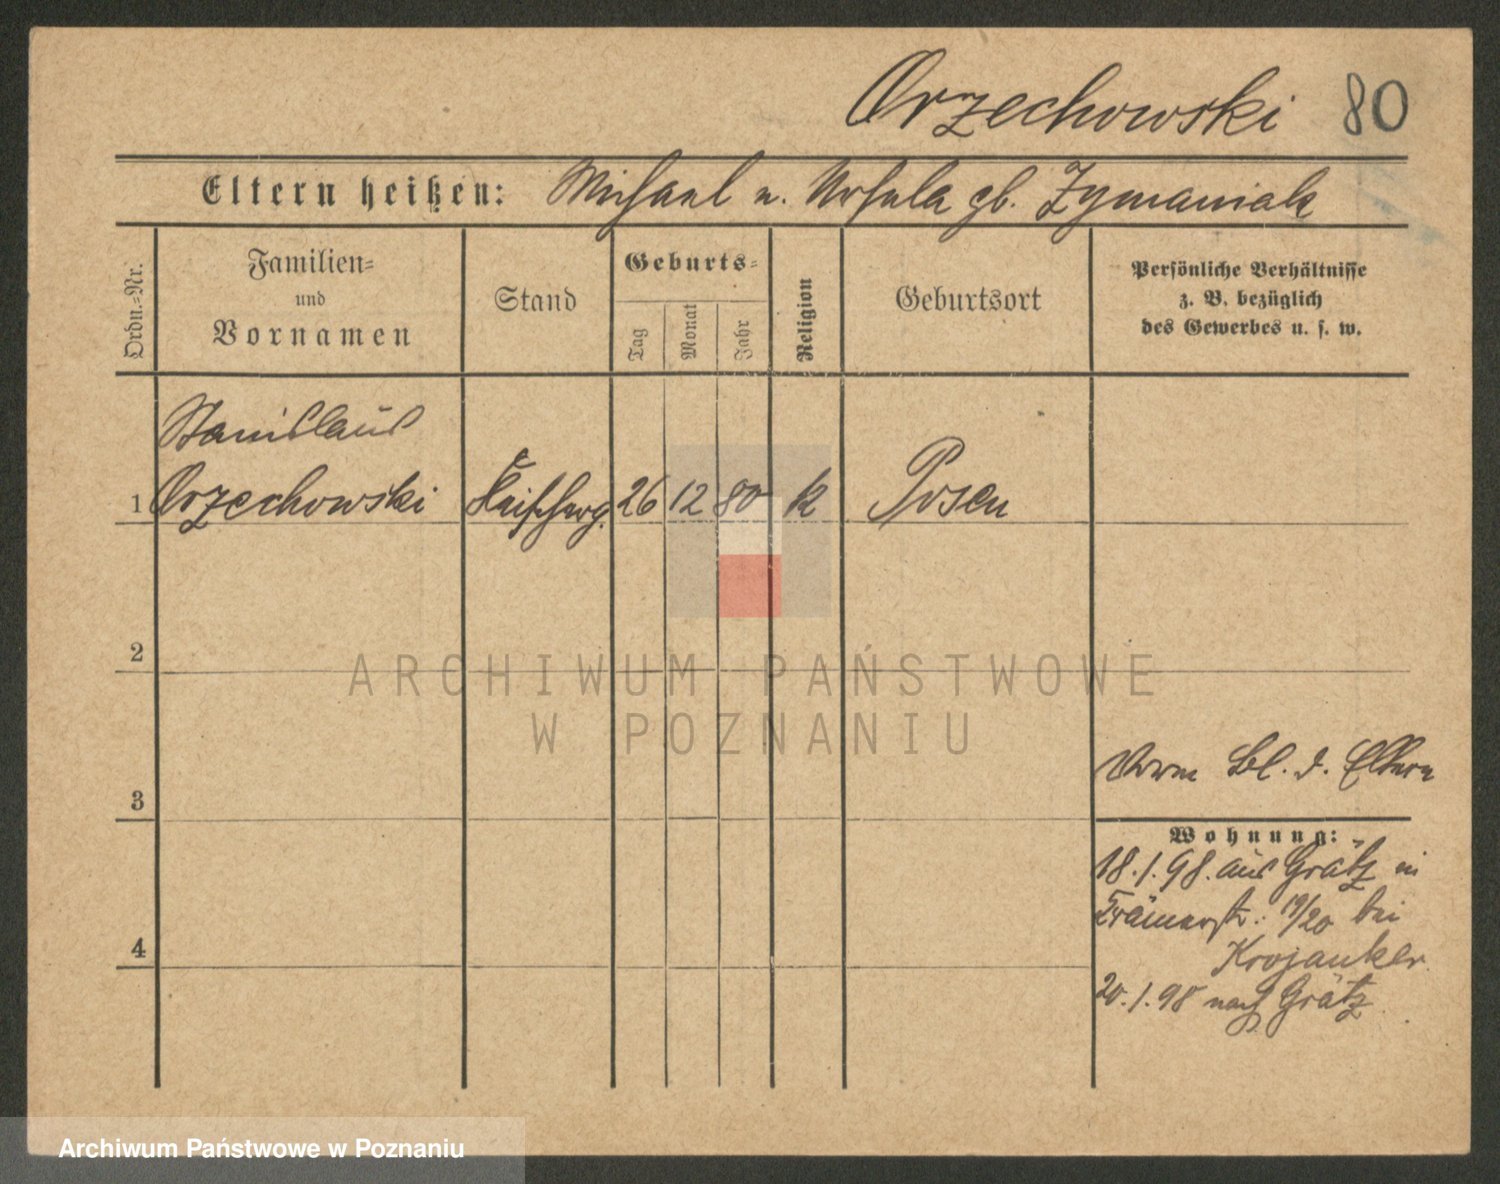 Orzechowski 80
Eltern heißen: Michael u. Ursula gb. Zymaniak
Ordn.-Nr.
Familien-
und
Vornamen
Stand
Geburts-
Tag
Monat
Jahr
Religion
Geburtsort
Persönliche Verhältnisse
z. B. bezüglich
des Gewerbes u. s. w.
Stanislaus
1 Orzechowski 26 12 80 k Posen
2
3
4
Bl. d. Eltern
Wohnung:
18.1.98. aus Grätz in
19/20 bei
Krojanker
20.1.98 nach Grätz
ARCHIWUM PAŃSTWOWE
W POZNANIU
Archiwum Państwowe w Poznaniu